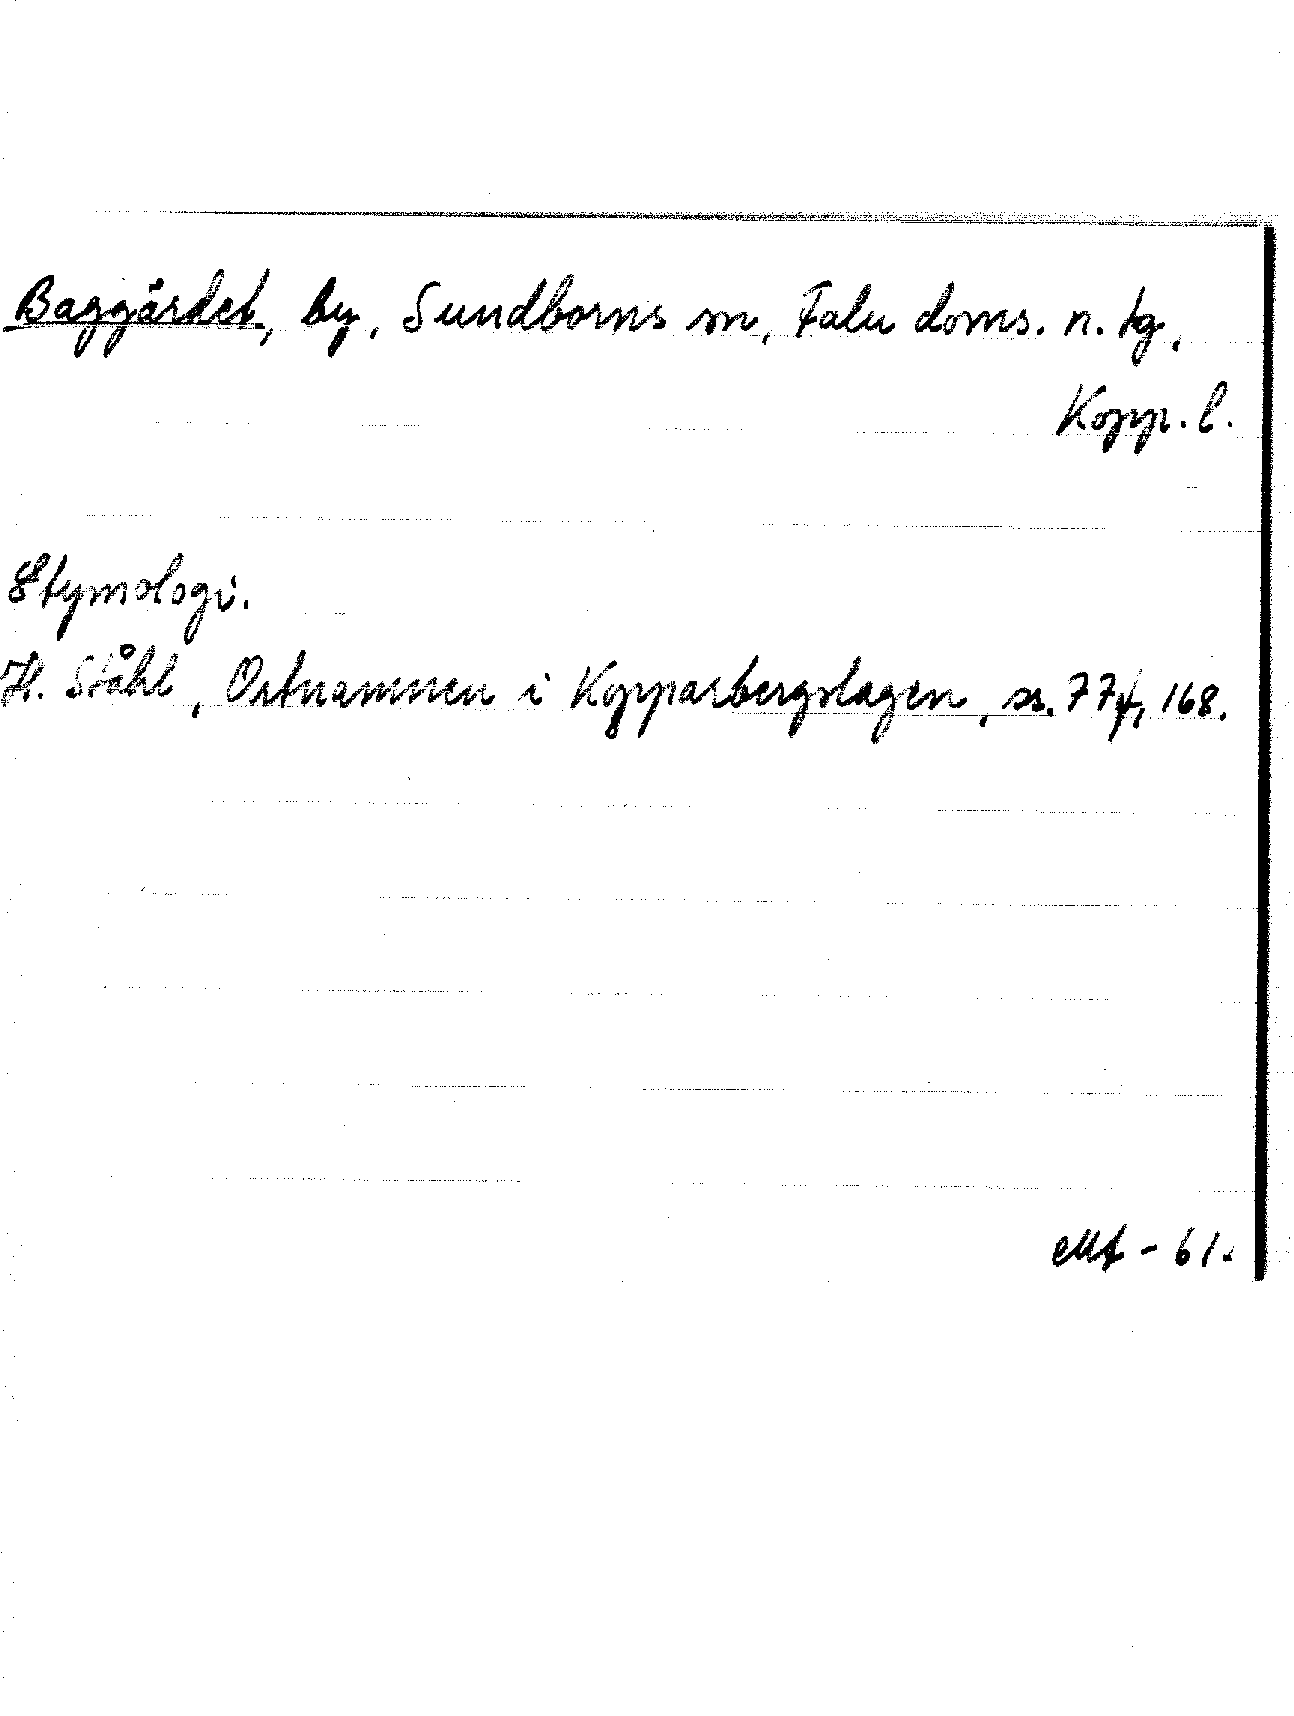 Baggärdet, by, Sundborns sn, Falu doms. n. tg,
Kopp. l.
Etymologi.
H. Ståhl, Ortnamnen i Kopparbergslagen, ss. 77f, 168.
- 61.